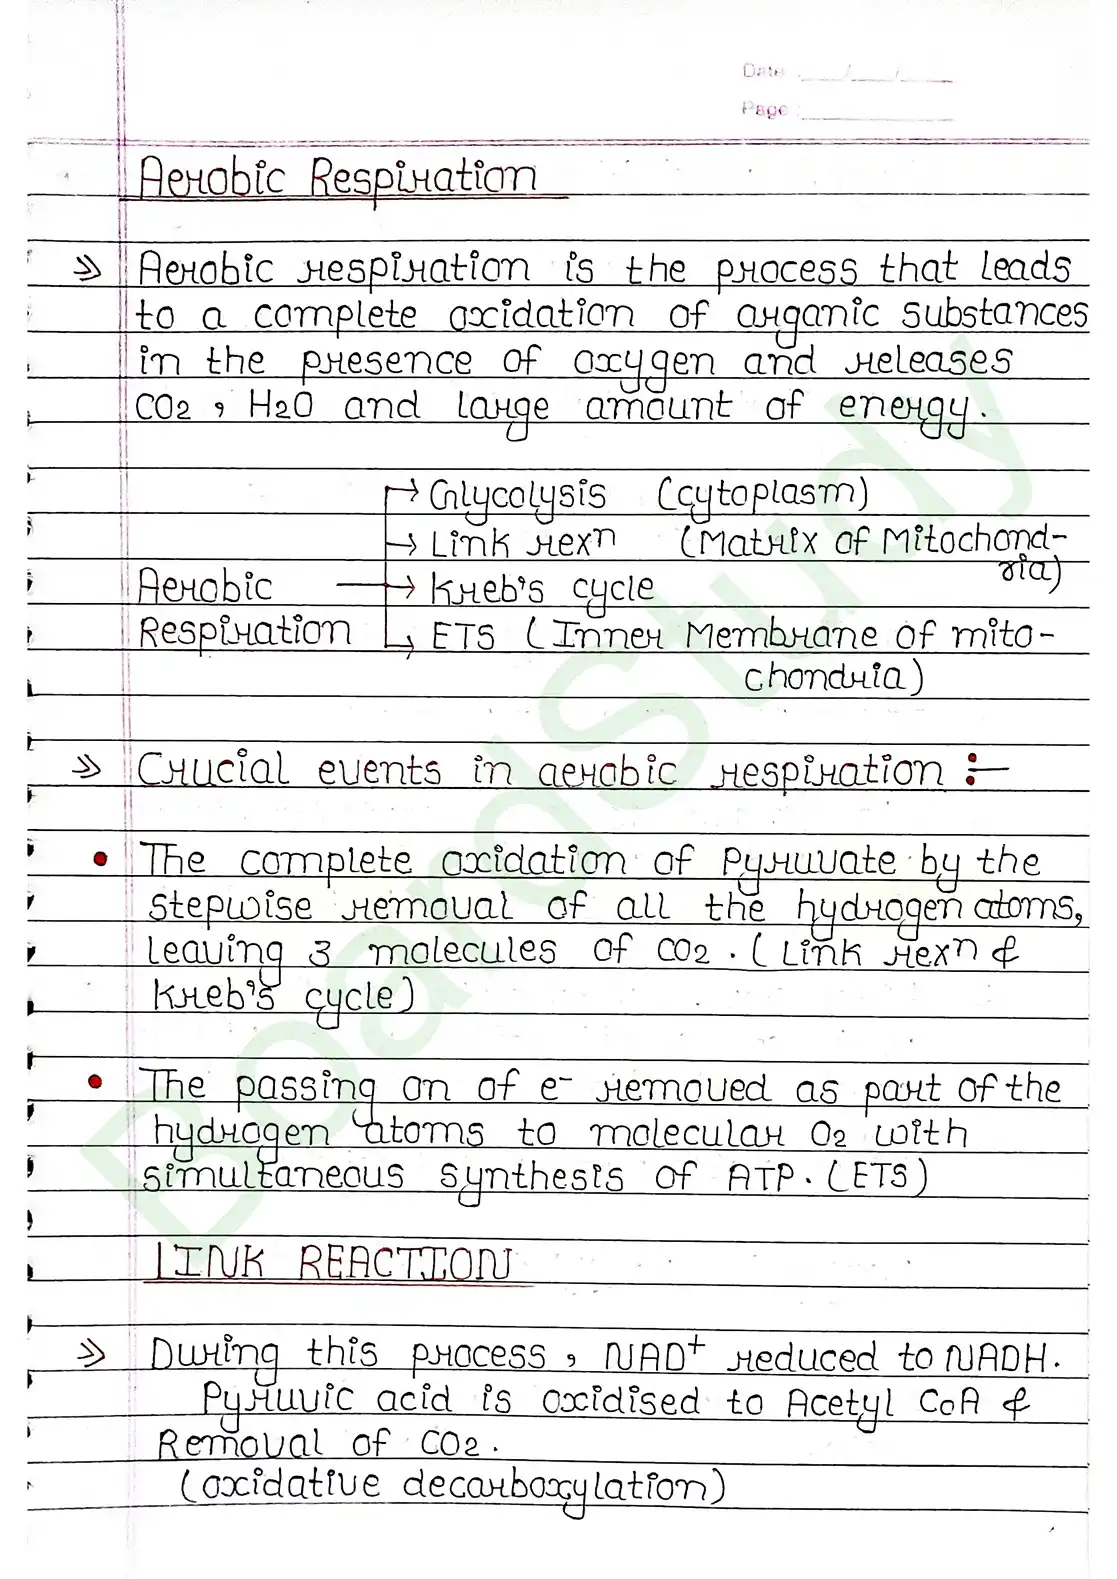 Date / /
Page
Aerobic Respiration
⨠ Aerobic respiration is the process that leads
to a complete oxidation of organic substances
in the presence of oxygen and releases
CO2 , H2O and large amount of energy.
→ Glycolysis (cytoplasm)
→ Link rexn (Matrix of Mitochond-
ria)
Aerobic → Kreb's cycle
Respiration → ETS (Inner Membrane of mito-
chondria)
⨠ Crucial events in aerobic respiration :-
• The complete oxidation of Pyruvate by the
stepwise removal of all the hydrogen atoms,
leaving 3 molecules of CO2 . (Link rexn &
Kreb's cycle)
• The passing on of e- removed as part of the
hydrogen atoms to molecular O2 with
simultaneous synthesis of ATP. (ETS)
LINK REACTION
⨠ During this process , NAD+ reduced to NADH.
Pyruvic acid is oxidised to Acetyl CoA &
Removal of CO2 .
(oxidative decarboxylation)
BoardStudy